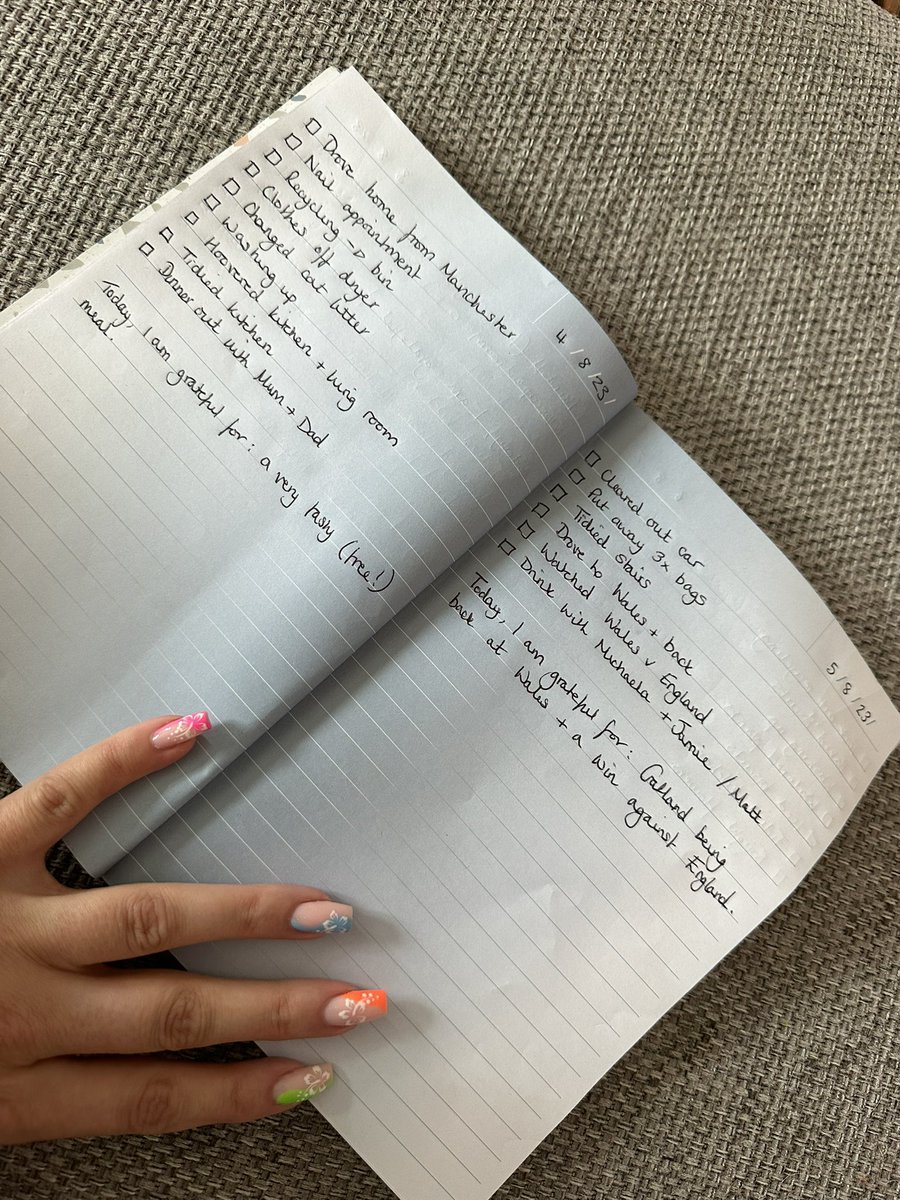 4/8/23/
□ Drove home from Manchester
□ Nail appointment
□ Recycling → bin
□ Clothes off dryer
□ Changed cat litter
□ Washing up
□ Hoovered kitchen + living room
□ Tidied kitchen
□ Dinner out with Mum + Dad
Today, I am grateful for: a very tasty (free!)
meal.
5/8/23/
□ Cleared out car
□ Put away 3x bags
□ Tidied stairs
□ Drove to Wales + back
□ Watched Wales v England
□ Drink with Michaela + Jamie / Matt
Today, I am grateful for: Gatland being
back at Wales + a win against England.